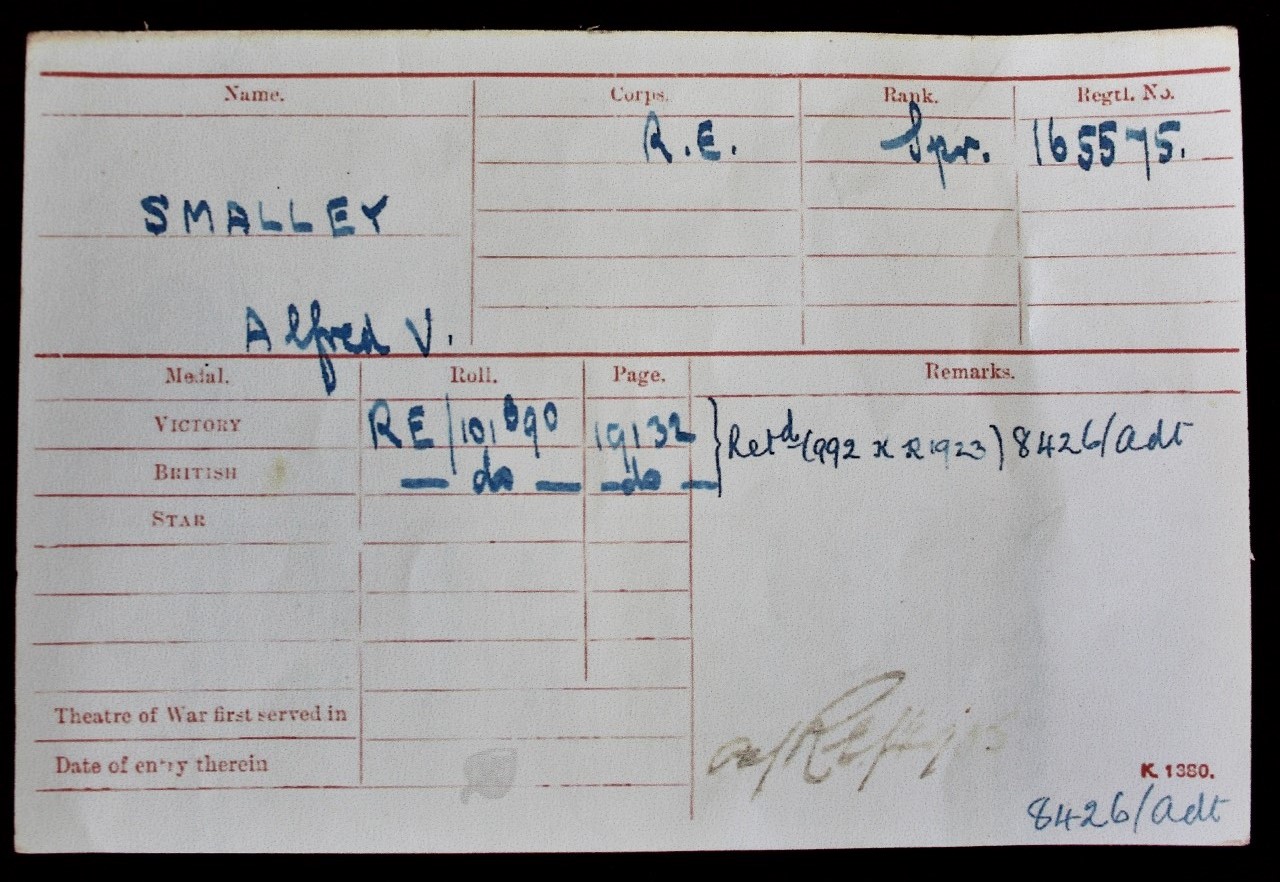 Name. Corps. Rank. Regtl. No.
R.E. Spr. 165575.
SMALLEY
Alfred V.
Medal. Roll. Page. Remarks.
VICTORY RE/101B90 19132 } Retd (992 K R 1923) 8426/Adt
BRITISH — do — — do —
STAR
Theatre of War first served in
Date of entry therein
K. 1380.
8426/Adt